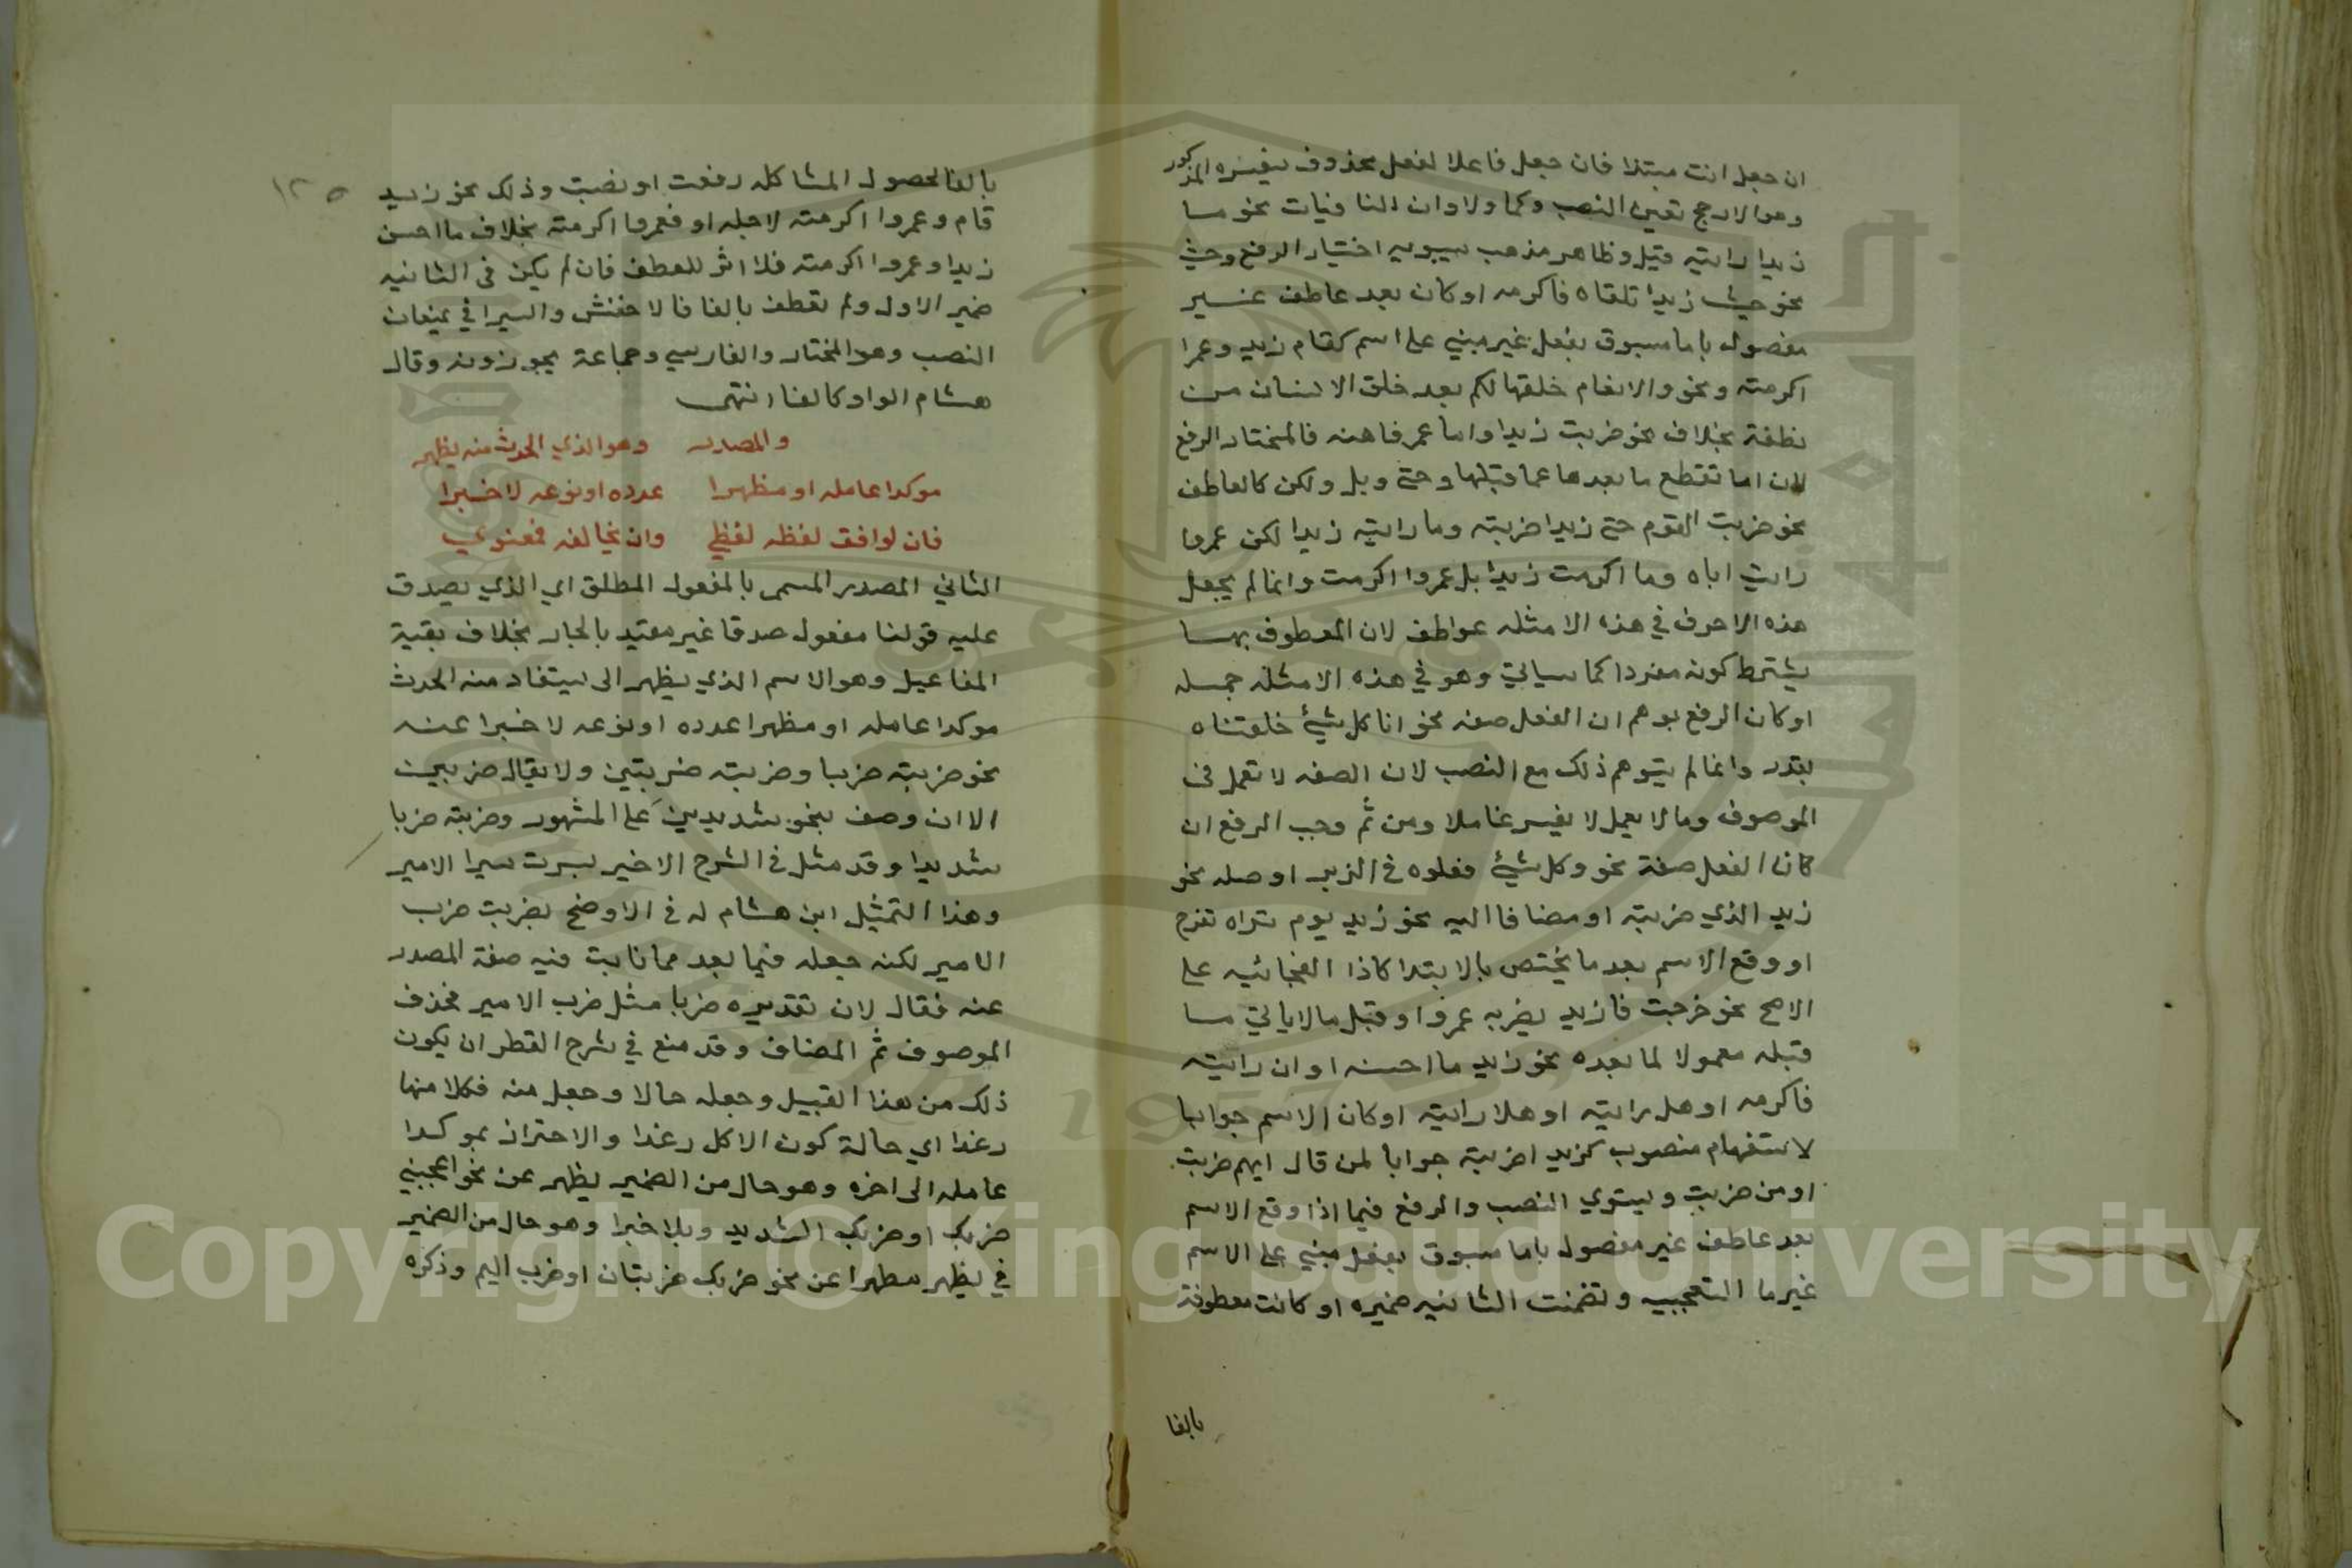 ان جعل انت مبتدا فان جعل فاعلا لفعل محذوف يفسره المذكور
وهو الارجح تعين النصب وكما ولا وان النافيات نحو ما
زيدا رايته قيل وظاهر مذهب سيبويه اختيار الرفع وحيث
نحو حيث زيدا تلقاه فاكرمه او كان بعد عاطف غير
مفصول باما مسبوق بفعل غير مبني على اسم كقام زيد وعمرا
اكرمته ونحو والانعام خلقها لكم بعد خلق الانسان من
نطفة بخلاف نحو ضربت زيدا واما عمر فاهنه فالمختار الرفع
لان اما تقطع ما بعدها عما قبلها وحتى وبل ولكن كالعاطف
نحو ضربت القوم حتى زيدا ضربته وما رايت زيدا لكن عمروا
رايت اباه وما اكرمت زيدا بل عمروا اكرمت وانما لم يجعل
هذه الاحرف في هذه الامثله عواطف لان المعطوف بها
يشترط كونه مفردا كما سياتي وهو في هذه الامثله جمله
او كان الرفع يوهم ان الفعل صفه نحو انا كل شيئ خلقناه
بقدر وانما لم يتوهم ذلك مع النصب لان الصفه لا تعمل في
الموصوف وما لا يعمل لا يفسر عاملا ومن ثم وجب الرفع ان
كان الفعل صفة نحو وكل شيئ فعلوه في الزبر او صله نحو
زيد الذي ضربته او مضافا اليه نحو زيد يوم تراه تفرح
او وقع الاسم بعد ما يختص بالابتدا كاذا الفجائيه على
الاصح نحو خرجت فازيد يضربه عمروا او قبل مالا ياتي ما
قبله معمولا لما بعده نحو زيد ما احسنه او ان رايته
فاكرمه او هل رايته او هلا رايته او كان الاسم جوابا
لاستفهام منصوب كزيد اضربته جوابا لمن قال ايهم ضربت
او من ضربت ويستوي النصب والرفع فيما اذا وقع الاسم
بعد عاطف غير مفصول باما مسبوق بفعل مبني على الاسم
غير ما التعجبيه وتضمنت الثانيه ضميره او كانت معطوفة
بالفا
١٢٥
بالفا لحصول المشاكله رفعت او نصبت وذلك نحو زيد
قام وعمروا اكرمته لاجله او فعمروا اكرمته بخلاف ما احسن
زيدا وعمروا اكرمته فلا اثر للعطف فان لم يكن في الثانيه
ضمير الاول ولم تعطف بالفا فالاخفش والسيرافي يمنعان
النصب وهو المختار والفارسي وجماعة يجوزونه وقال
هشام الواو كالفا انتهى
والمصدر وهو الذي الحدث منه يظهر
موكدا عامله او مظهرا عدده او نوعه لا خبرا
فان لوافق لفظه لفظي وان يخالفه فمعنوي
الثاني المصدر المسمى بالمفعول المطلق اي الذي يصدق
عليه قولنا مفعول صدقا غير مقيد بالجار بخلاف بقية
المفاعيل وهو الاسم الذي يظهر الى يستفاد منه الحدث
موكدا عامله او مظهرا عدده او نوعه لا خبرا عنه
نحو ضربته ضربا وضربته ضربتين ولا يقال ضربين
الا ان وصف بنحو شديدين على المشهور وضربته ضربا
شديدا وقد مثل في الشرح الاخير بسرت سيرا الامير
وهذا التمثيل ابن هشام له في الاوضح بضربت ضرب
الامير لكنه جعله فيما بعد مما نابت فيه صفة المصدر
عنه فقال لان تقديره ضربا مثل ضرب الامير فحذف
الموصوف ثم المضاف وقد منع في شرح القطر ان يكون
ذلك من هذا القبيل وجعله حالا وجعل منه فكلا منها
رغدا اي حالة كون الاكل رغدا والاحتراز بموكدا
عامله الى اخره وهو حال من الضمير يظهر عن نحو اعجبني
ضربك او ضربك الشديد وبلا خبرا وهو حال من الضمير
في يظهر مطهرا عن نحو ضربك ضربتان او ضرب اليم وذكره
Copyright © King Saud University
1957